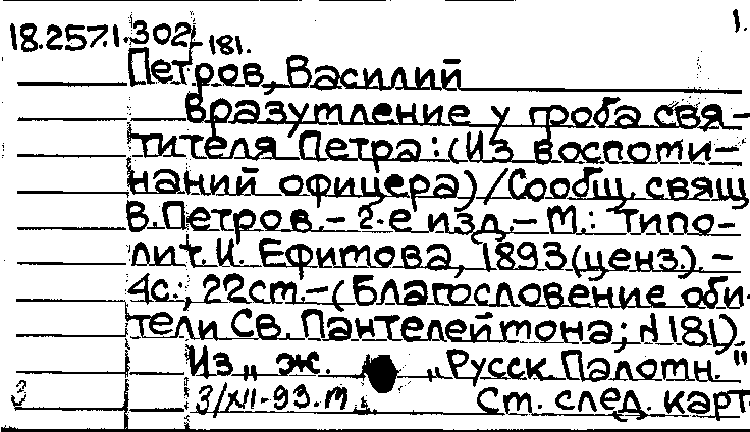 1.
18.257.1.302-181.
Петров, Василий
Вразумление у гроба свя-
тителя Петра: (Из воспоми-
наний офицера)/Сообщ. свящ
В.Петров.- 2-е изд.- М.: Типо-
лит. И. Ефимова, 1893(ценз.). -
4с.; 22см.-(Благословение оби-
тели Св. Пантелеймона; № 181).
Из „ ж. „Русск. Паломн."
3/XII-93.М
См. след. карт.
3